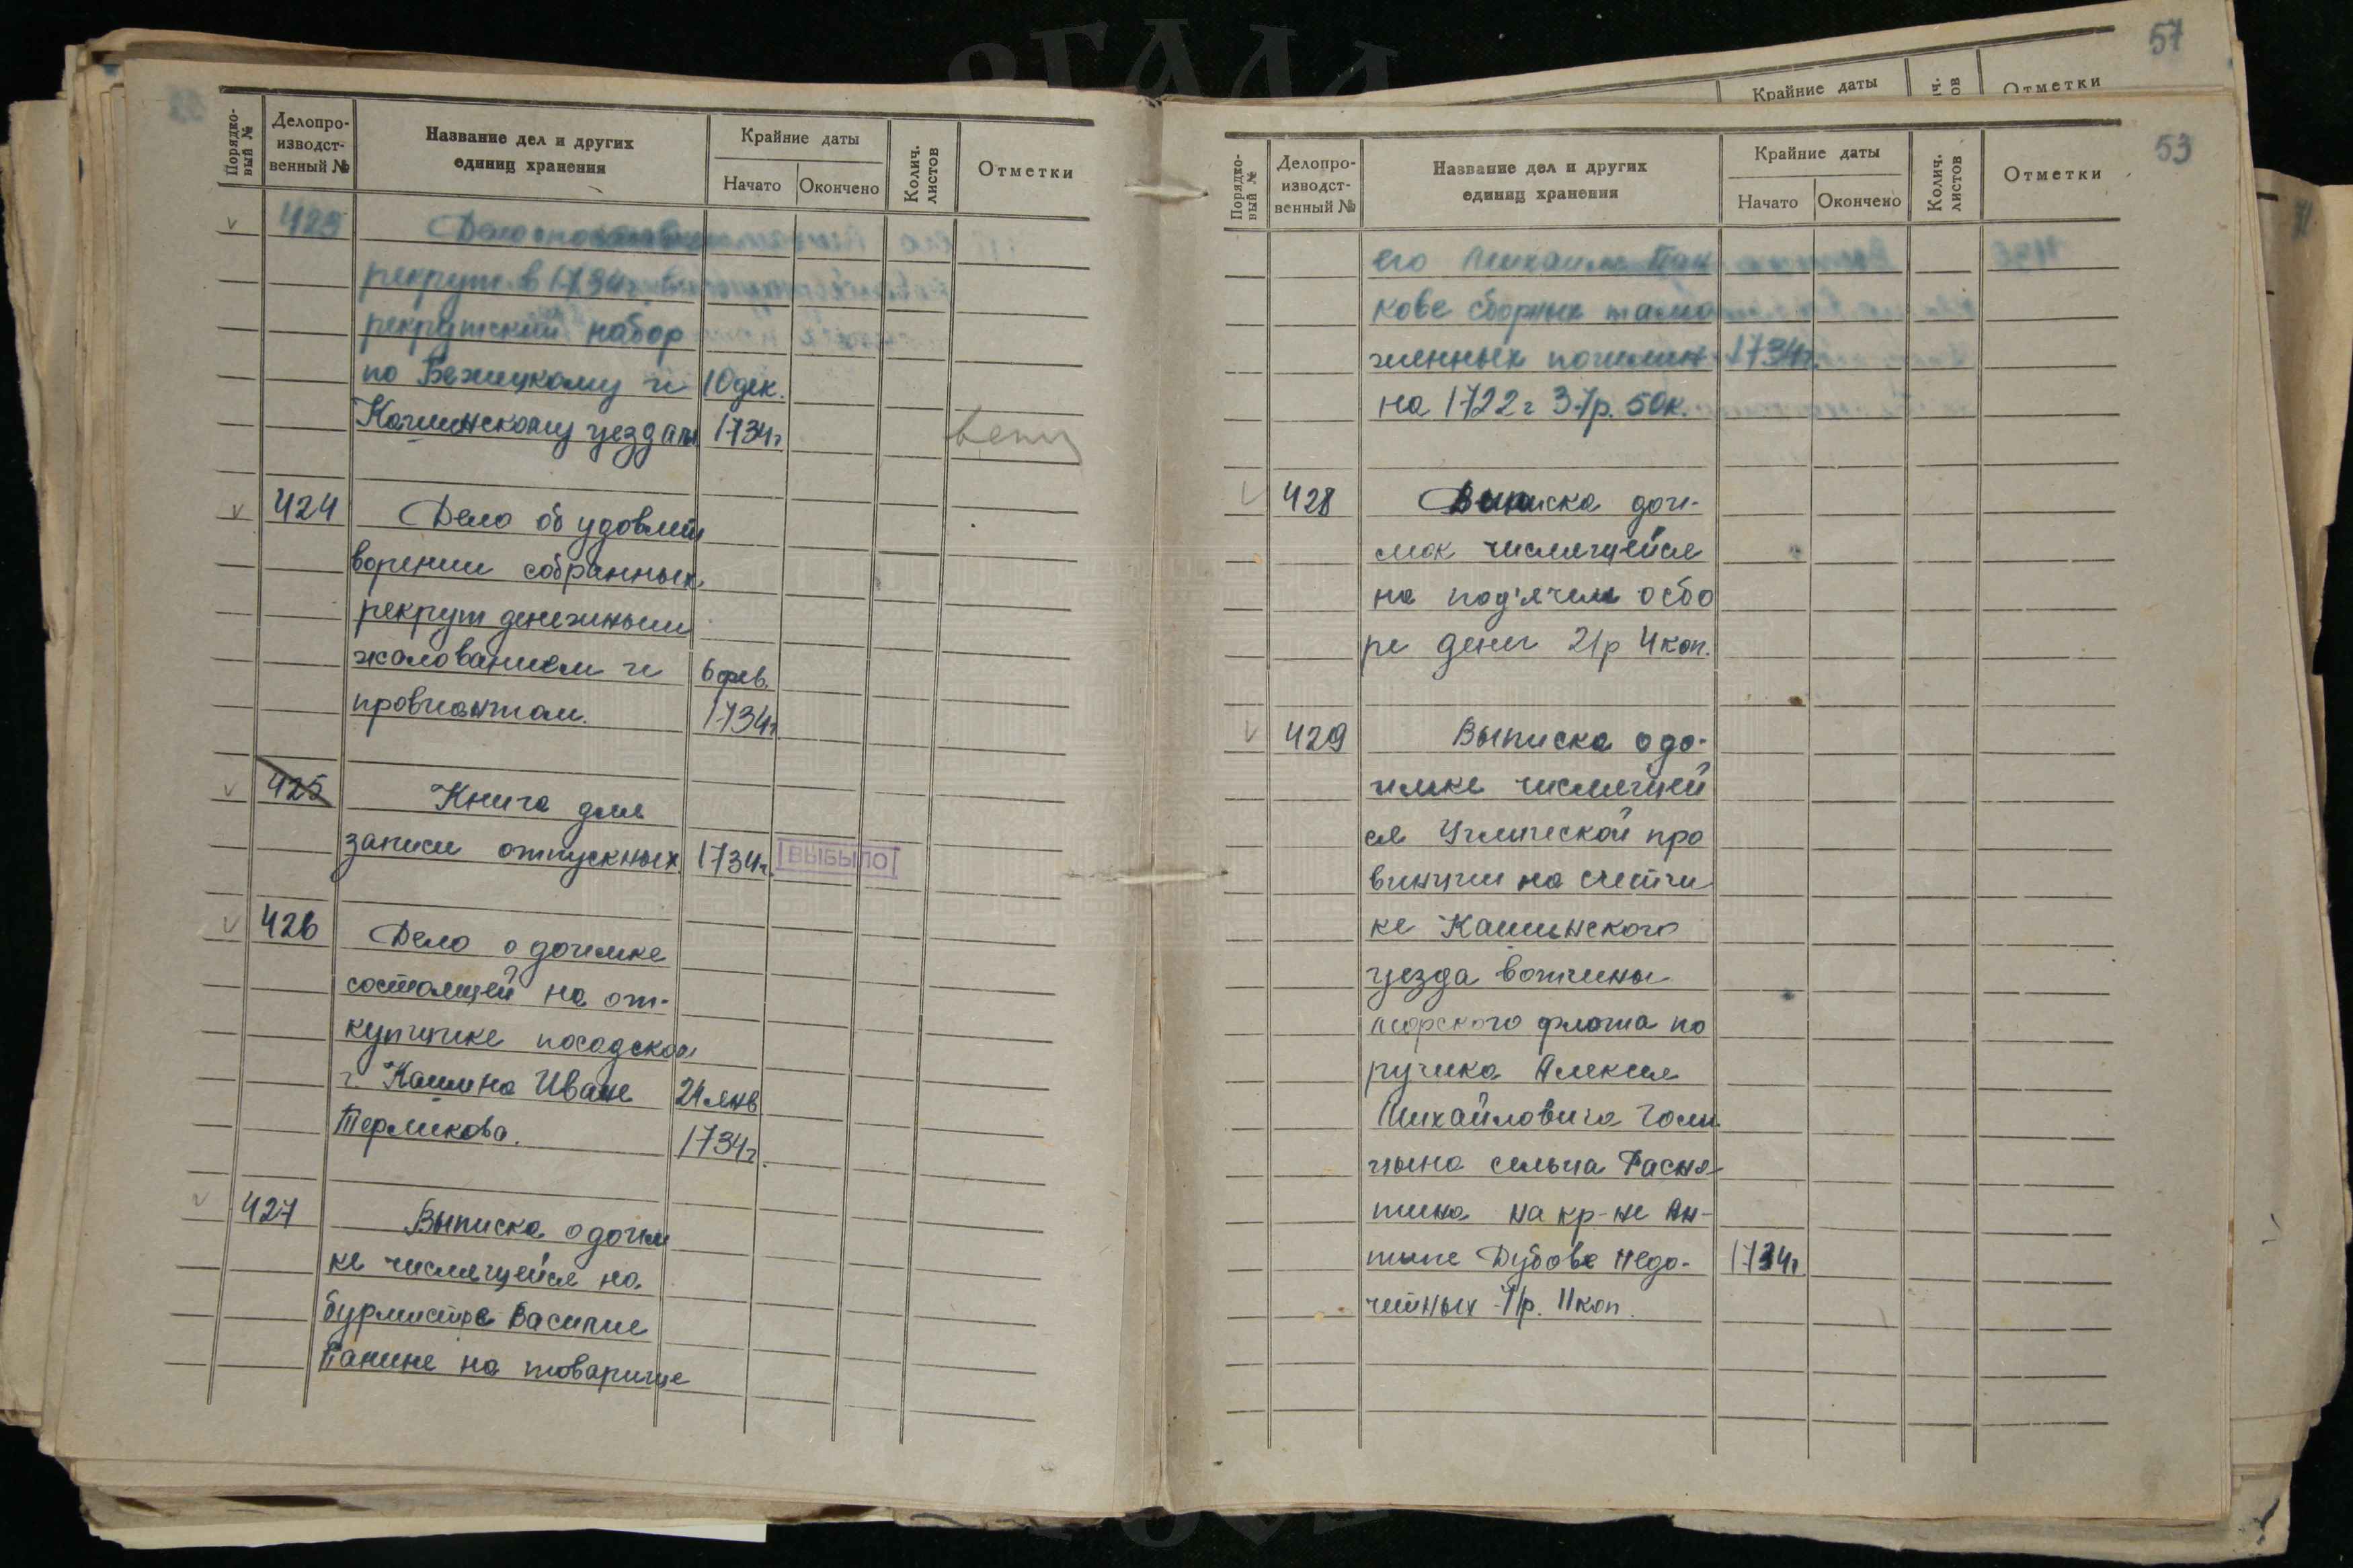 Порядко-
вый №
Делопро-
изводст-
венный №
Название дел и других
единиц хранения
Крайние даты
Начато
Окончено
Колич.
листов
Отметки
423
Дело
рекрут в 1734г.
рекрутский набор
по Бежицкому и 10 дек.
Кашинскому уездам 1734г
424 Дело об удовлет
ворении собранных
рекрут денежным
жалованием и 6 фев.
провиантом. 1734г
425 Книга для
записи отпускных 1734г. ВЫБЫЛО
426 Дело о доимке
состоящей на от-
купщике посадском
г. Кашина Иване 24 янв
Терликова. 1734г.
427 Выписка о доим
ке числящейся на
бурмистре Василие
Панине на товарище
57
Крайние даты
Отметки
53
Порядко-
вый №
Делопро-
изводст-
венный №
Название дел и других
единиц хранения
Крайние даты
Начато
Окончено
Колич.
листов
Отметки
его Михаиле Пан
кове сборных тамо
женных пошлин 1734г.
на 1722г 37р. 50к.
428 Выписка дои-
мок числящейся
на под'ячем о сбо
ре денег 21р 4коп.
429 Выписка о до-
имке числящей
ся Угличской про
винции на счетчи
ке Кашинского
уезда вотчины
морского флота по
ручика Алексея
Михайловича Голи
цына сельца Расня
тина на кр-не Ан-
типе Дубове недо- 1734г.
четных 71р. 11коп.